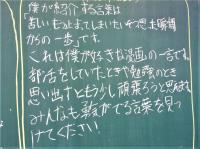 僕が紹介する言葉は
苦しいもうとまってしまいたいそう思った瞬間
からの一歩」です。
これは僕が好きな漫画の一言です。
部活をしていたときや勉強のとき
思い出すともう少し頑張ろうと思えます
みんなも 力がでる言葉を見つ
けてください